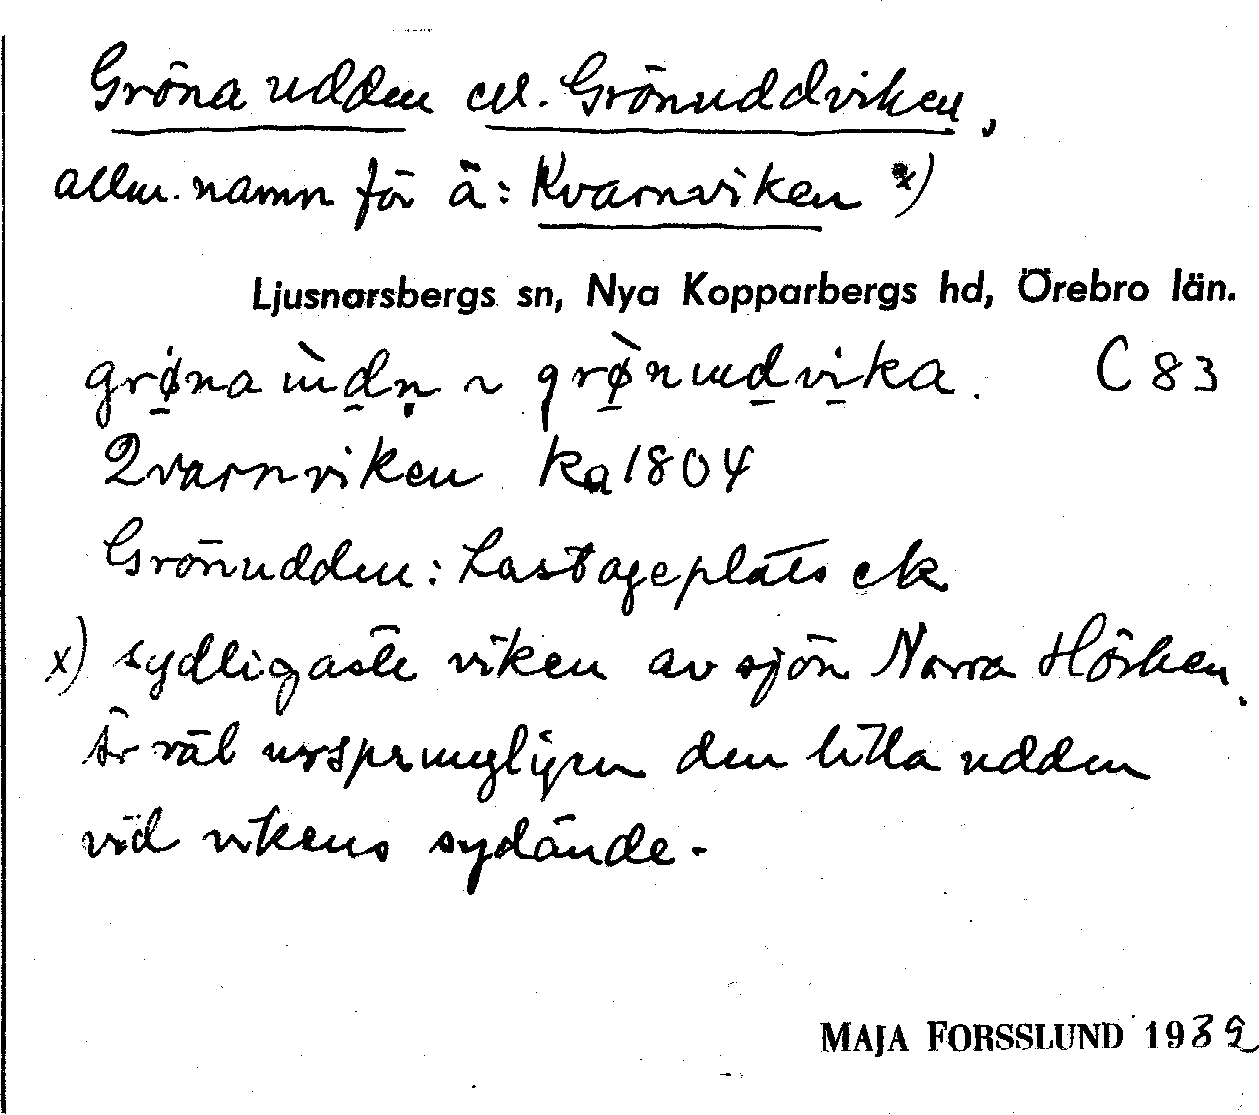 Gröna udden ell. Grönuddviken,
allm. namn för ä: Kvarnviken x)
Ljusnarsbergs sn, Nya Kopparbergs hd, Örebro län.
grø̀na ùdn̥ ~ grø̀nudvika. C 83
Qvarnviken ka 1804
Grönudden: Lastageplats ek
x) sydligaste viken av sjön Norra Hörken.
Är väl ursprungligen den lilla udden
vid vikens sydände.
MAJA FORSSLUND 1932